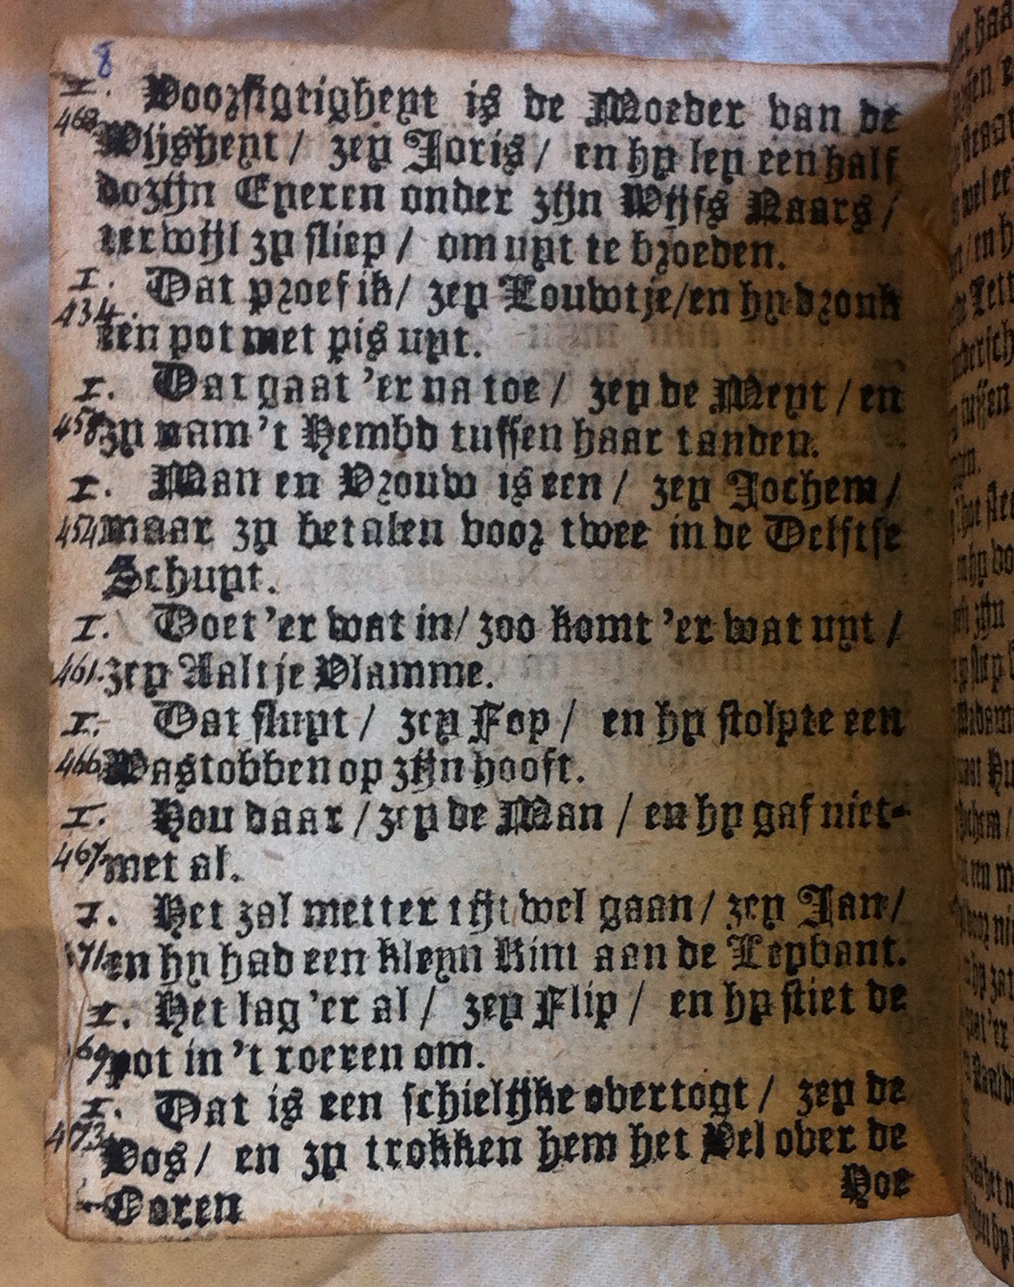 8
I. Voorsigtigheyt is de Moeder van de
468. Wijsheyt / zey Joris / en hy ley een half
dozijn Eyeren onder zijn Wijfs Naars /
terwijl zy sliep / om uyt te broeden.
I. Dat proef ik / zey Louwtje / en hy dronk
434. een pot met pis uyt.
I. Dat gaat 'er na toe / zey de Meyt / en
458 zy nam 't Hembd tussen haar tanden.
I. Man en Vrouw is een / zey Jochem /
454 maar zy betalen voor twee in de Delftse
Schuyt.
I. Doet 'er wat in / zoo komt 'er wat uyt /
461. zey Aaltje Vlamme.
I. Dat sluyt / zey Fop / en hy stolpte een
466 Wastobben op zijn hooft.
I. Hou daar / zey de Man / en hy gaf niet-
467. met al.
I. Het zal metter tijt wel gaan / zey Jan /
71 en hy had een kleyn Kint aan de Leybant.
I. Het lag 'er al / zey Flip / en hy stiet de
69 pot in 't roeren om.
I. Dat is een schielijke overtogt / zey de
473 Vos / en zy trokken hem het Vel over de
Ooren
Hoe